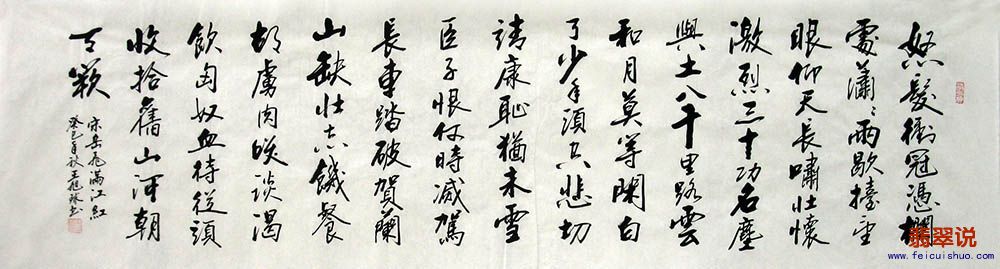 怒髮衝冠憑欄
處瀟〻雨歇擡望
眼仰天長嘯壯懷
激烈三十功名塵
與土八千里路雲
和月莫等閑白
了少年頭空悲切
靖康恥猶未雪
臣子恨何時滅駕
長車踏破賀蘭
山缺壯志饑餐
胡虜肉笑談渴
飲匈奴血待從頭
收拾舊山河朝
天闕
宋岳飛滿江紅
癸巳年秋王旭書
翡翠说
www.feicuishuo.com